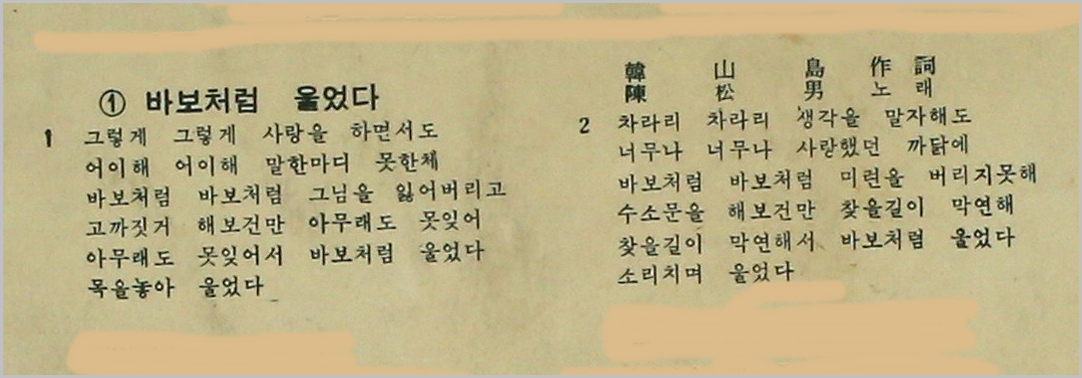 ① 바보처럼 울었다
韓山島 作詞
陳松男 노래
1 그렇게 그렇게 사랑을 하면서도
어이해 어이해 말한마디 못한체
바보처럼 바보처럼 그님을 잃어버리고
고까짓거 해보건만 아무래도 못잊어
아무래도 못잊어서 바보처럼 울었다
목을놓아 울었다
2 차라리 차라리 생각을 말자해도
너무나 너무나 사랑했던 까닭에
바보처럼 바보처럼 미련을 버리지못해
수소문을 해보건만 찾을길이 막연해
찾을길이 막연해서 바보처럼 울었다
소리치며 울었다